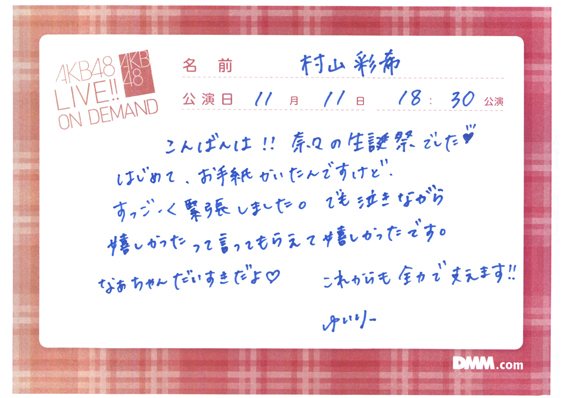 AKB48
LIVE!!
ON DEMAND
AKB
48
名前 村山彩希
公演日 11月11日 18:30公演
こんばんは!! 奈々の生誕祭でした♥
はじめて、お手紙かいたんですけど、
すっごーく緊張しました。でも泣きながら
嬉しかったって言ってもらえて嬉しかったです。
なぁちゃんだいすきだよ♡ これからも全力で支えます!!
ゆいりー
DMM.com